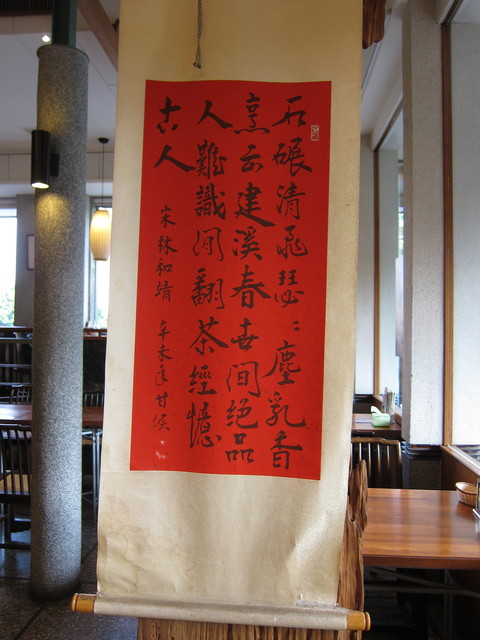 石碾清飛瑟々塵乳香
烹出建溪春世間絕品
人難識閒翻茶經憶
古人
宋林和靖 辛未年甘候